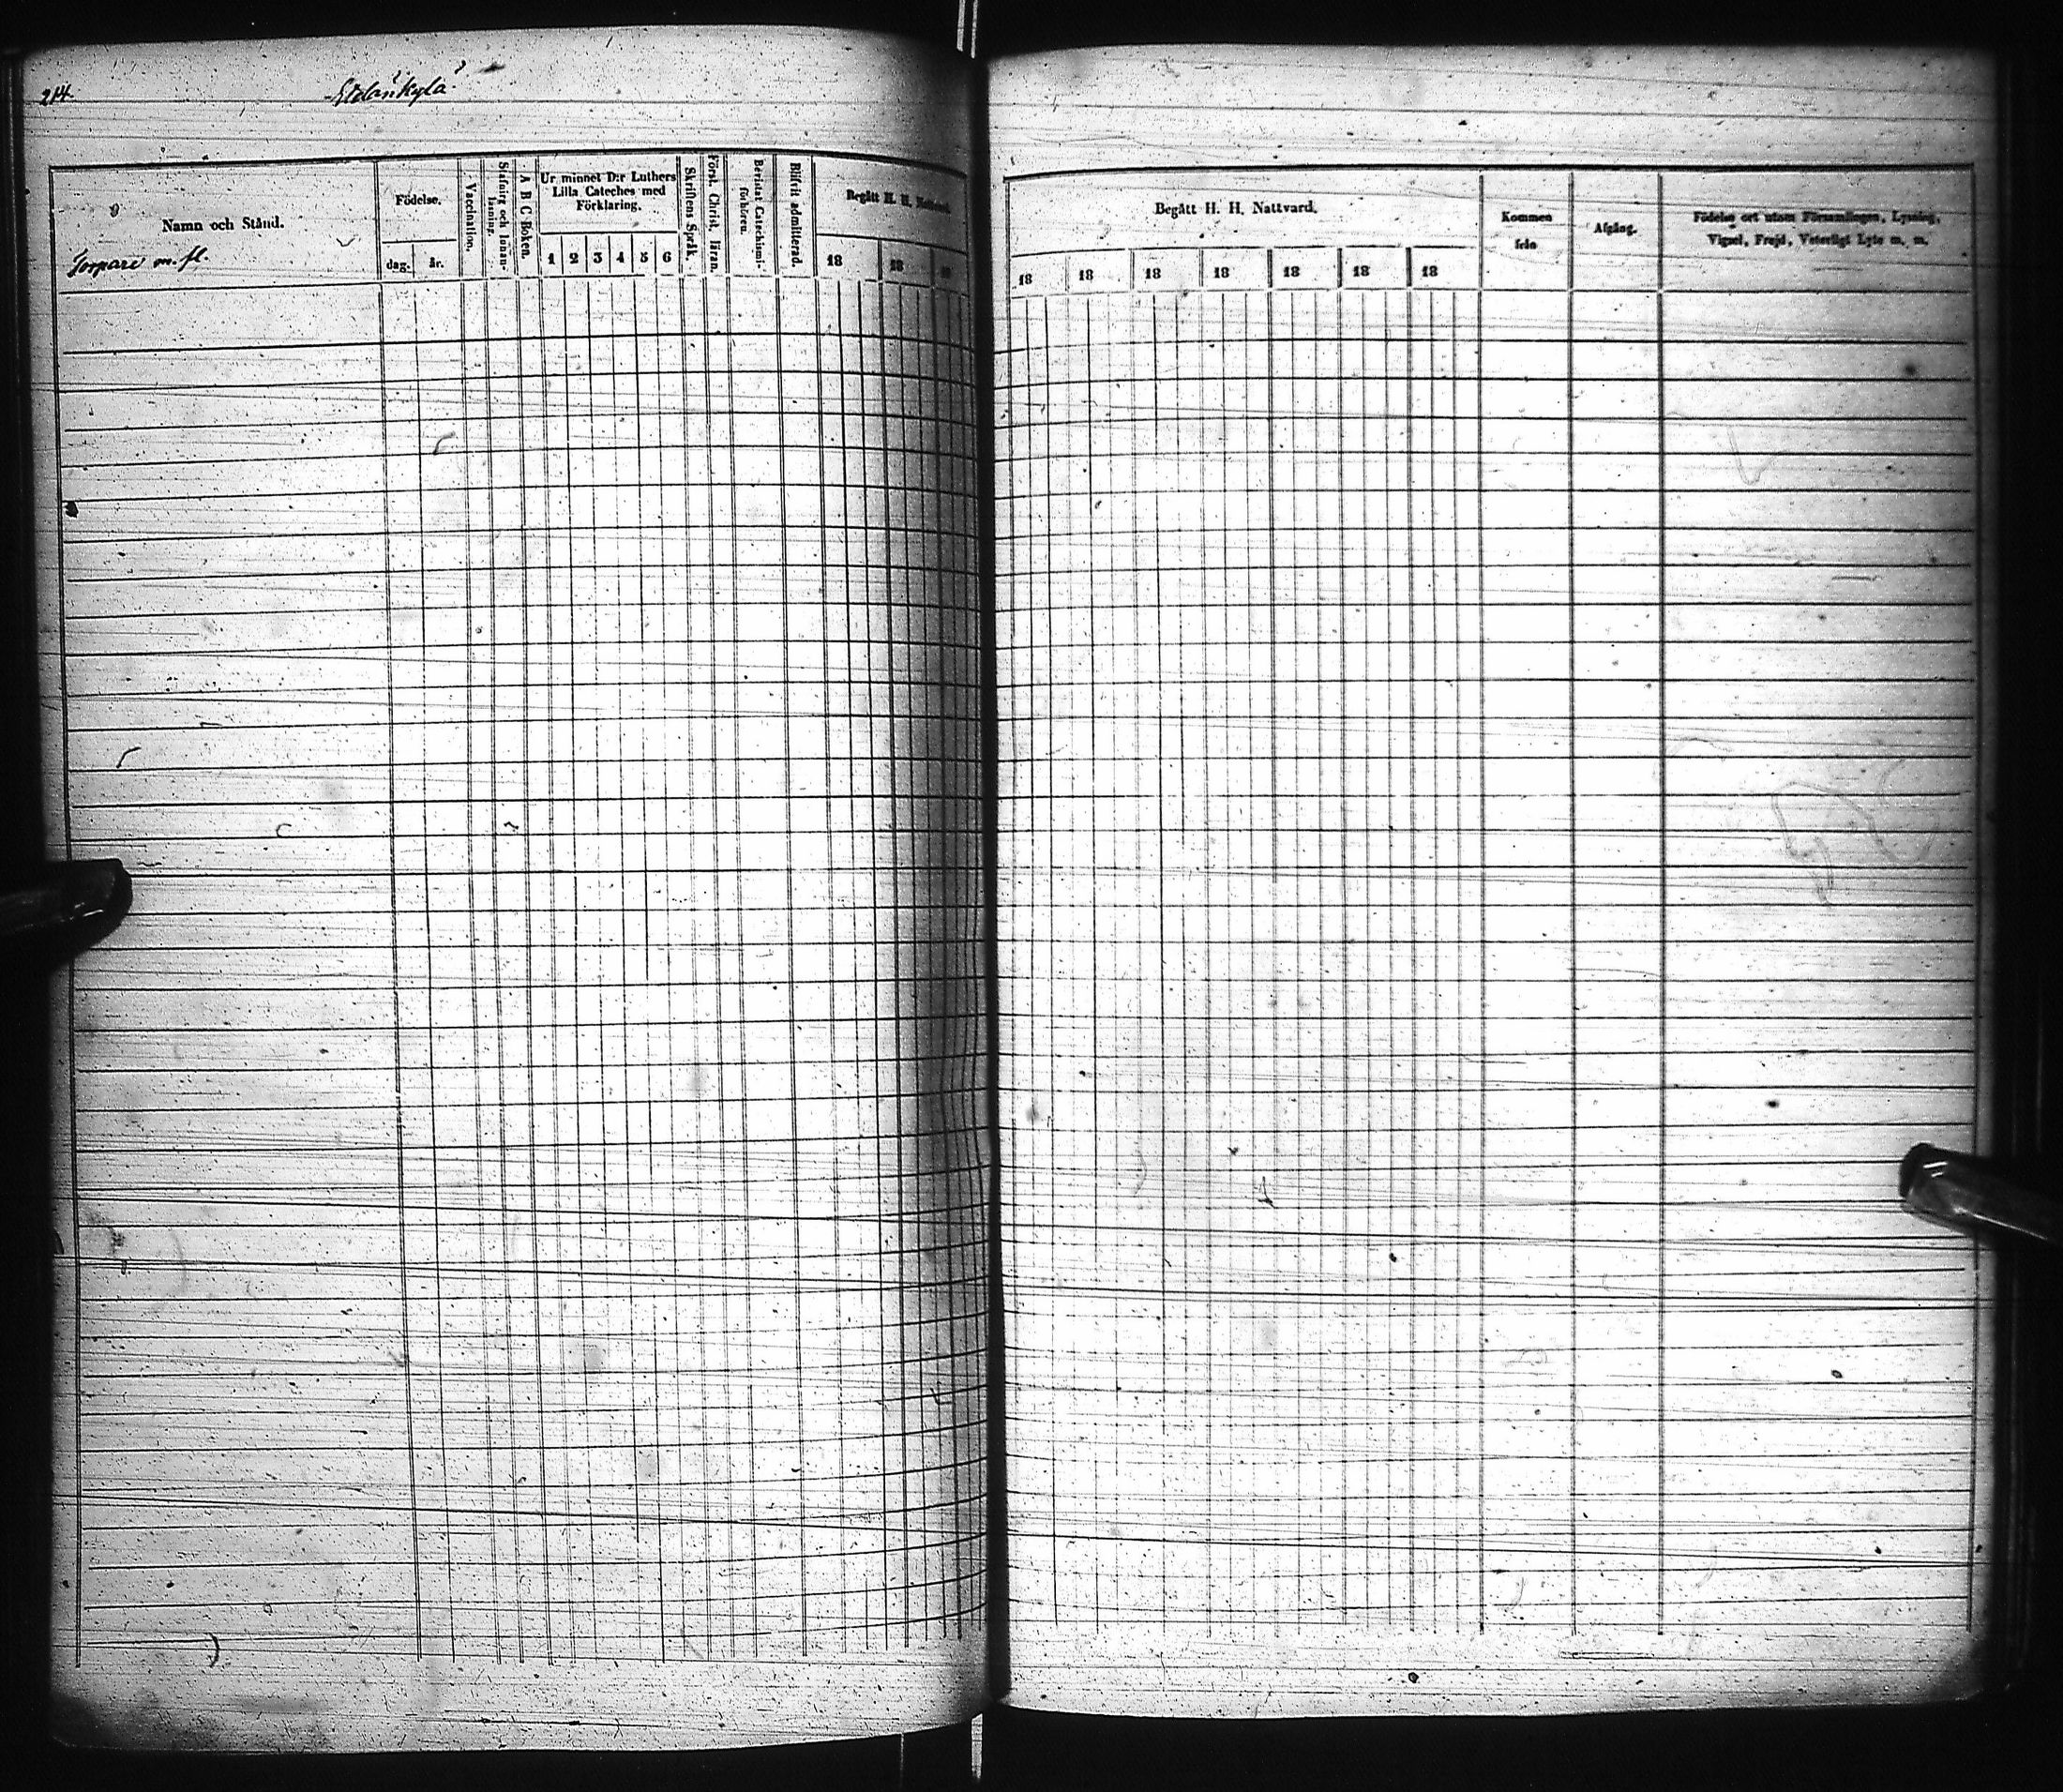 214.
Etelänkylä
Namn och Stånd.
Torpare m. fl.
Födelse.
dag. år.
Vaccination.
Stafning och Innanläsning.
A B C Boken.
Ur minnet D:r Luthers
Lilla Cateches med
Förklaring.
1 2 3 4 5 6
Skriftens Språk.
Först. Christ. läran.
Bevistat Catechismiförhören.
Blifvit admitterad.
Begått H. H. Nattvard.
18 18 18
Begått H. H. Nattvard.
18 18 18 18 18 18 18
Kommen
från
Afgång.
Födelse ort utom Församlingen, Lysning,
Vigsel, Frejd, Veterligt Lyte m. m.